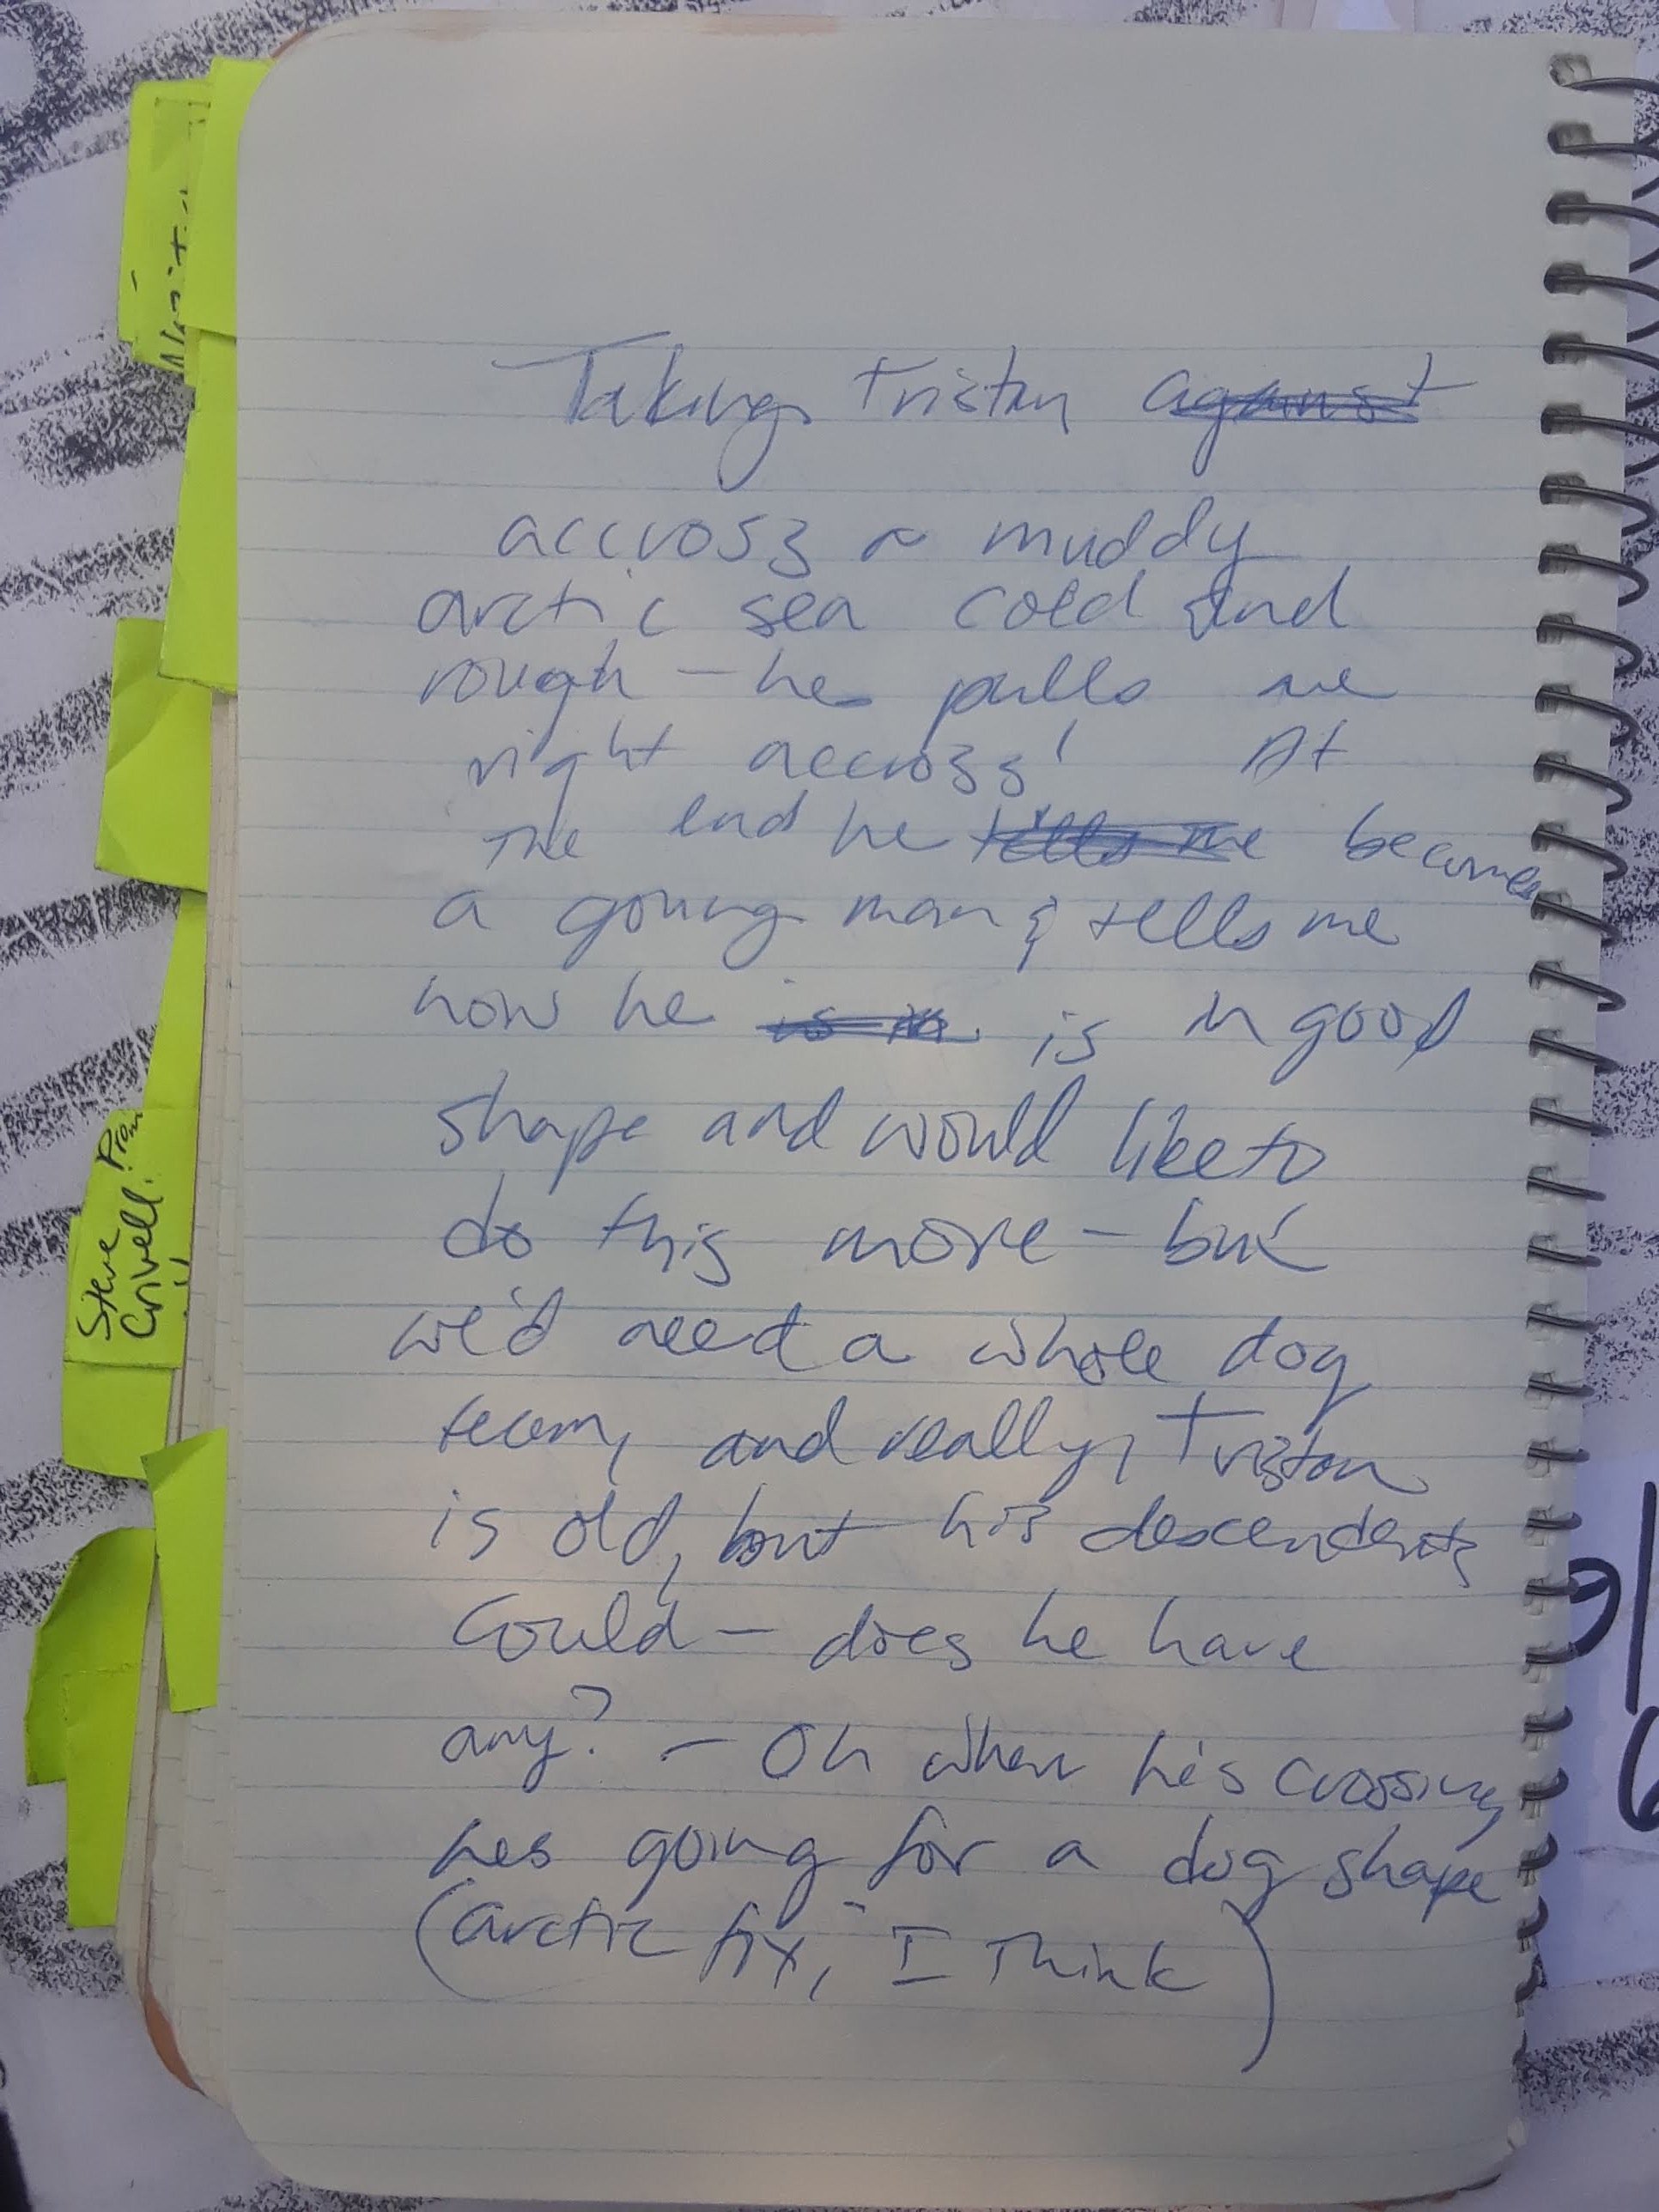 Taking Tristan against
accross a muddy
arctic sea cold and
rough — he pulls me
right accross! At
The end he tells me becomes
a young man & tells me
how he is in is in good
shape and would like to
do this more — but
we'd need a whole dog
team, and really, Tristan
is old, but his descendents
Could — does he have
any? — Oh when he's crossing
hes going for a dog shape
(arctic fox, I Think)
Steve
Crivell.